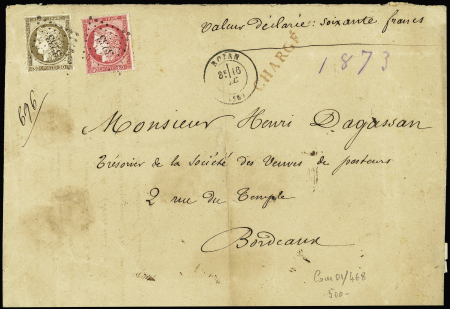 Valeur déclarée: soixante francs
CHARGÉ
1873
ROYAN
696
Monsieur Henri Dagassan
Trésorier de la Société des Veuves de pasteurs
2 rue du Temple
Bordeaux
500-